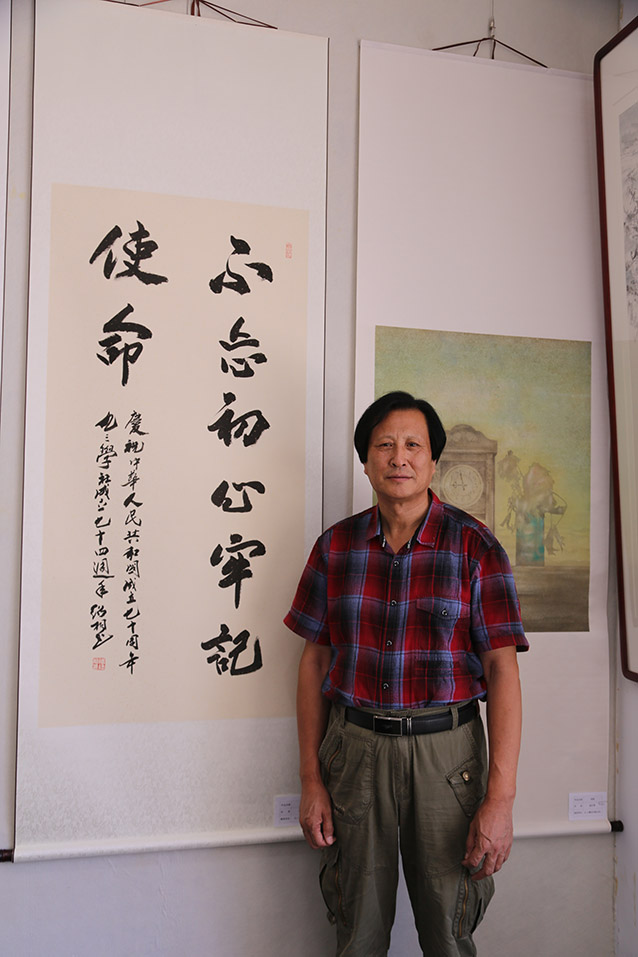 不忘初心牢記
使命
慶祝中華人民共和國成立七十周年
九三學社成立七十四週年